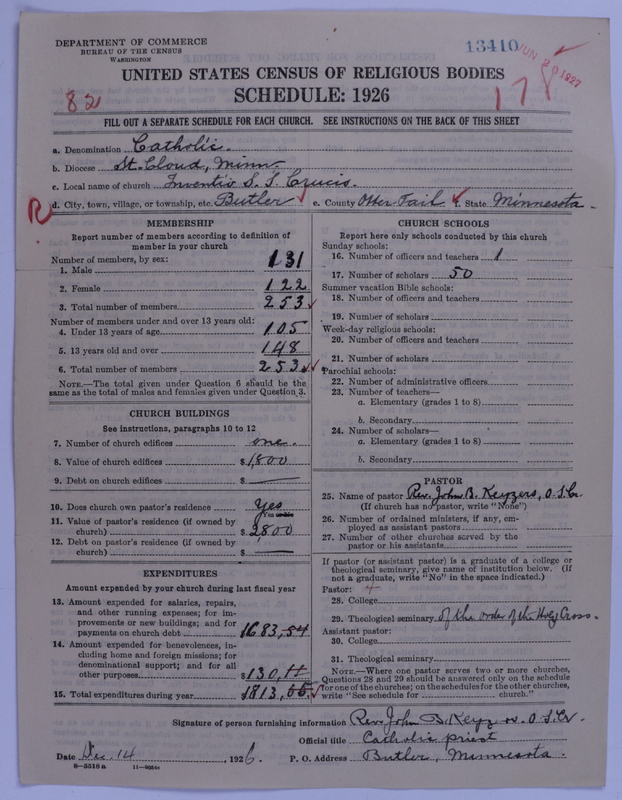 DEPARTMENT OF COMMERCE
BUREAU OF THE CENSUS
WASHINGTON
13410
JUN 20 1927
UNITED STATES CENSUS OF RELIGIOUS BODIES
SCHEDULE: 1926
82
178
FILL OUT A SEPARATE SCHEDULE FOR EACH CHURCH. SEE INSTRUCTIONS ON THE BACK OF THIS SHEET
a. Denomination Catholic.
b. Diocese St. Cloud, Minn.
c. Local name of church Inventio S. S. Crucis.
R d. City, town, village, or township, etc. Butler ✓ e. County Otter Tail ✓ f. State Minnesota.
MEMBERSHIP
Report number of members according to definition of member in your church
Number of members, by sex:
1. Male 131
2. Female 122
3. Total number of members 253 ✓
Number of members under and over 13 years old:
4. Under 13 years of age 105
5. 13 years old and over 148
6. Total number of members 253 ✓✓
NOTE.—The total given under Question 6 should be the
same as the total of males and females given under Question 3.
CHURCH BUILDINGS
See instructions, paragraphs 10 to 12
7. Number of church edifices one.
8. Value of church edifices $1,800
9. Debt on church edifices $ —
10. Does church own pastor's residence Yes
11. Value of pastor's residence (if owned by
church) $2800
12. Debt on pastor's residence (if owned by
church) $ —
EXPENDITURES
Amount expended by your church during last fiscal year
13. Amount expended for salaries, repairs,
and other running expenses; for im-
provements or new buildings; and for
payments on church debt $1683,54
14. Amount expended for benevolences, in-
cluding home and foreign missions; for
denominational support; and for all
other purposes $130,11
15. Total expenditures during year $1813,65 ✓
CHURCH SCHOOLS
Report here only schools conducted by this church
Sunday schools:
16. Number of officers and teachers 1
17. Number of scholars 50
Summer vacation Bible schools:
18. Number of officers and teachers
19. Number of scholars
Week-day religious schools:
20. Number of officers and teachers
21. Number of scholars
Parochial schools:
22. Number of administrative officers
23. Number of teachers—
a. Elementary (grades 1 to 8)
b. Secondary
24. Number of scholars—
a. Elementary (grades 1 to 8)
b. Secondary
PASTOR
25. Name of pastor Rev. John B. Keyzers, O.S.Cr.
(If church has no pastor, write "None")
26. Number of ordained ministers, if any, em-
ployed as assistant pastors
27. Number of other churches served by the
pastor or his assistants
If pastor (or assistant pastor) is a graduate of a college or
theological seminary, give name of institution below. (If
not a graduate, write "No" in the space indicated.)
Pastor:
28. College
29. Theological seminary of the order of the Holy Cross.
Assistant pastor:
30. College
31. Theological seminary
NOTE.—Where one pastor serves two or more churches,
Questions 28 and 29 should be answered only on the schedule
for one of the churches; on the schedules for the other churches,
write "See schedule for church."
Signature of person furnishing information Rev. John B. Keyzers. O.S.Cr.
Official title Catholic priest
Date Dec. 14, 1926. P. O. Address Butler, Minnesota.
8-5518 a